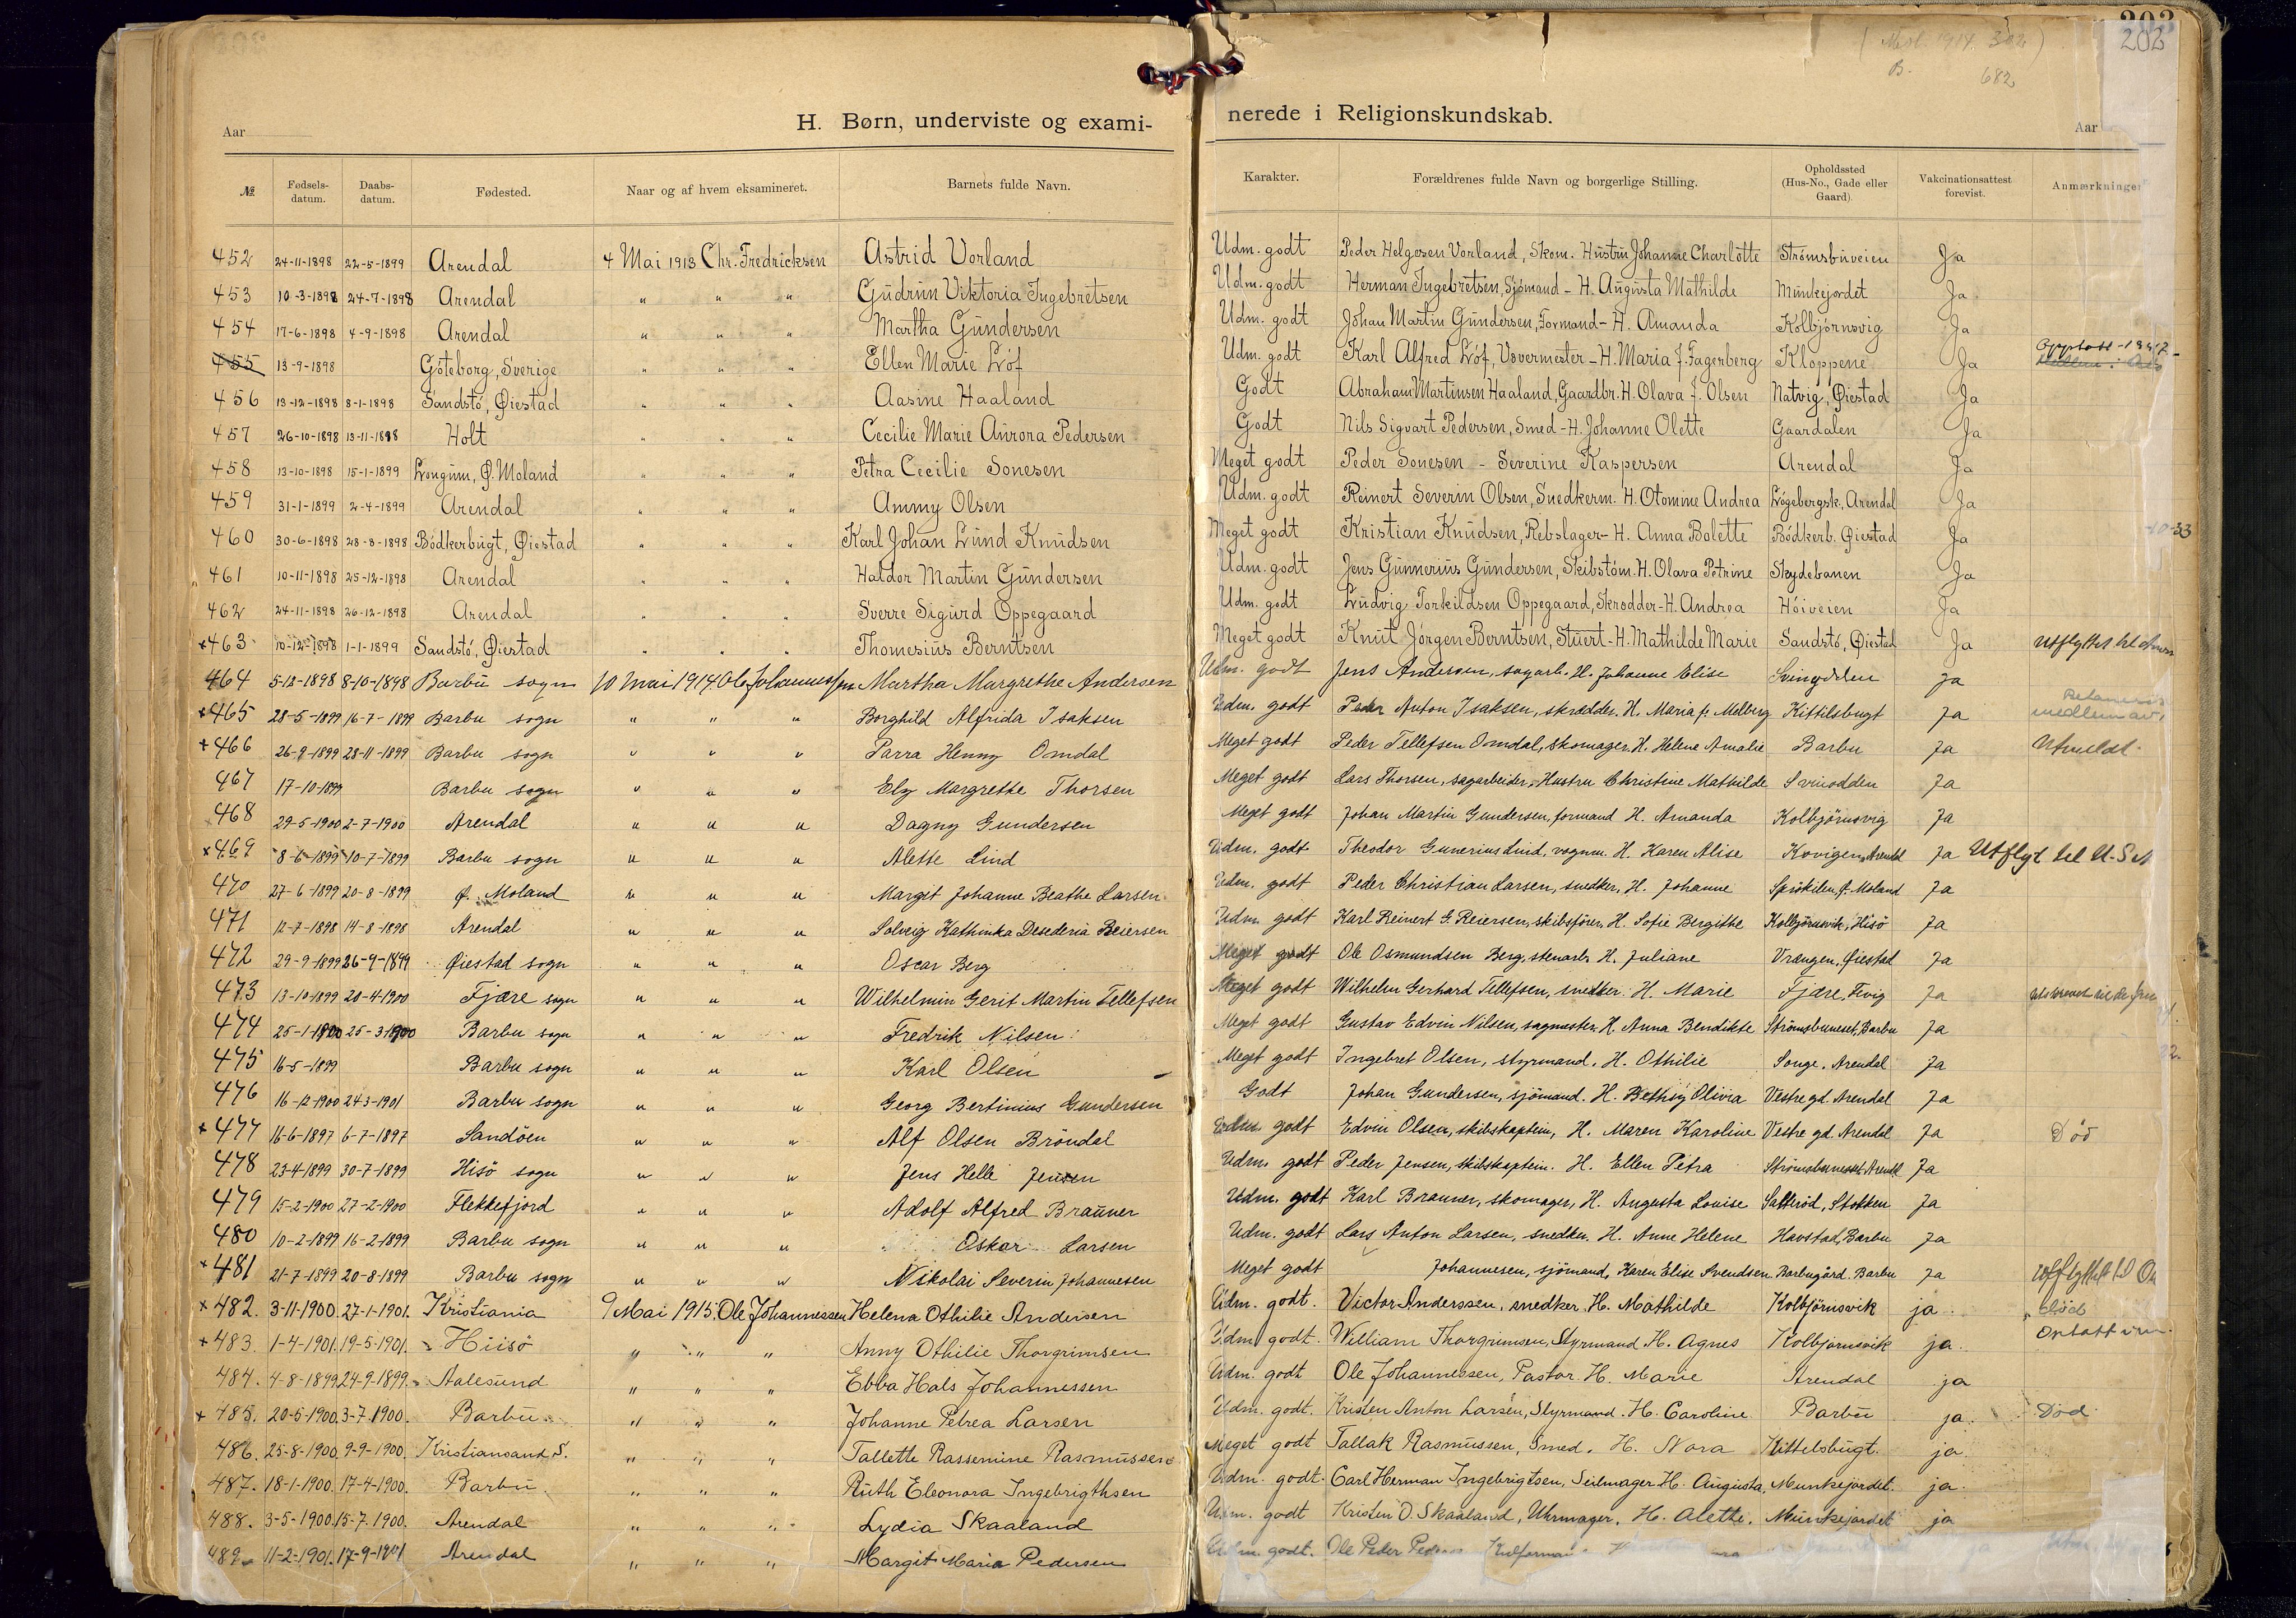 203
202
( 1914. 302 )
B. 682
Aar H. Børn, underviste og exami- nerede i Religionskundskab. Aar
№ Fødsels-datum. Daabs-datum. Fødested. Naar og af hvem eksamineret. Barnets fulde Navn. Karakter. Forældrenes fulde Navn og borgerlige Stilling. Opholdssted (Hus-No., Gade eller Gaard). Vakcinationsattest forevist. Anmærkninger
452 24-11-1898 22-5-1899 Arendal 4 Mai 1913 Chr. Fredricksen Astrid Vorland Udm. godt Peder Helgesen Vorland, Skom. Hustru Johanne Charlotte Strømsbuveien Ja
453 10-3-1898 24-7-1898 Arendal " " " Gudrun Viktoria Ingebretsen Udm. godt Herman Ingebretsen, Sjómand - H. Augusta Mathilde Munkejordet Ja
454 17-6-1898 4-9-1898 Arendal " " " Martha Gundersen Udm. godt Johan Martin Gundersen, Formand - H. Amanda Kolbjórnsvig Ja
455 13-9-1898 Góteborg, Sverige " " " Ellen Marie Lóf Udm. godt Karl Alfred Lóf, Vævermester - H. Maria f. Fagerberg Kloppene Ja
456 13-12-1898 8-1-1898 Sandstó, Øiestad " " " Aasine Haaland Godt Abraham Martinsen Haaland, Gaardbr. H. Olava f. Olsen Natvig, Øiestad Ja
457 26-10-1898 13-11-1898 Holt " " " Cecilie Marie Aurora Pedersen Godt Nils Sigvart Pedersen, Smed - H. Johanne Olette Gaardalen Ja
458 13-10-1898 15-1-1899 Longum, Ø. Moland " " " Petra Cecilie Sonesen Meget godt Peder Sonesen - Severine Kaspersen Arendal Ja
459 31-1-1899 2-4-1899 Arendal " " " Ammy Olsen Udm. godt Reinert Severin Olsen, Snedkerm. H. Otomine Andrea Lógebergsk., Arendal Ja
460 30-6-1898 28-8-1898 Bódkerbugt, Øiestad " " " Karl Johan Lund Knudsen Meget godt Kristian Knudsen, Rebslager - H. Anna Bolette Bódkerb. Øiestad Ja
461 10-11-1898 25-12-1898 Arendal " " " Haldor Martin Gundersen Udm. godt Jens Gunnerius Gundersen, Skibstóm. H. Olava Petrine Skydebanen Ja
462 24-11-1898 26-12-1898 Arendal " " " Sverre Sigurd Oppegaard Udm. godt Ludvig Torkildsen Oppegaard, Skrædder - H. Andrea Hóiveien Ja
×463 10-12-1898 1-1-1899 Sandstó, Øiestad " " " Thomesius Berntsen Meget godt Knut Jórgen Berntsen, Stuert - H. Mathilde Marie Sandstó, Øiestad Ja Utflyttet til
464 5-12-1898 8-10-1898 Barbu sogn 10 Mai 1914 Ole Johannessen Martha Margrethe Andersen Udm. godt Jens Andersen, sagarb. H. Johanne Elise Ja
×465 28-5-1899 16-7-1899 Barbu sogn " " " Borghild Alfrida Isaksen Udm. godt Peder Anton Isaksen, skrædder. H. Maria f. Melberg Kittilsbugt Ja medlem av
+466 26-9-1899 28-11-1899 Barbu sogn " " " Parra Henny Omdal Meget godt Peder Tellefsen Omdal, skomager. H. Helene Amalie Barbu Ja Utmeldt.
467 17-10-1899 Barbu sogn " " " Ely Margrethe Thorsen Meget godt Lars Thorsen, sagarbeider, Hustru Christine Mathilde Svinodden Ja
468 29-5-1900 2-7-1900 Arendal " " " Dagny Gundersen Meget godt Johan Martin Gundersen, formand H. Amanda Kolbjörnsvig Ja
×469 8-6-1899 10-7-1899 Barbu sogn " " " Alette Lind Udm. godt Theodor Gunerius Lind, vognm. H. Karen Alise Kvvigen, Arendal Ja Utflyt til U.S.A
470 27-6-1899 20-8-1899 Ø. Moland " " " Margit Johanne Beathe Larsen Udm. godt Peder Christian Larsen, snedker, H. Johanne Ø. Moland Ja
471 12-7-1898 14-8-1898 Arendal " " " Solveig Kathinka Desederia Reiersen Udm. godt Karl Reinert G. Reiersen, skibsförer, H. Sofie Bergitte Kolbjörnsvik, Hisö Ja
472 29-9-1899 26-9-1899 Øiestad sogn " " " Oscar Berg Meget godt Ole Osmundsen Berg, stenarb. H. Juliane Vrængen, Øiestad Ja
473 13-10-1899 20-4-1900 Fjære sogn " " " Wilhelmin Gerit Martin Tellefsen Meget godt Wilhelm Gerhard Tellefsen, snedker. H. Marie Fjære, Fevig Ja
474 25-1-1900 25-3-1900 Barbu sogn " " " Fredrik Nilsen Meget godt Gustav Edvin Nilsen, sagmester, H. Anna Bendikte Strömsbuneset, Barbu Ja
475 16-5-1899 Barbu sogn " " " Karl Olsen Meget godt Ingebret Olsen, styrmand. H. Othilie Songe. Arendal Ja
476 16-12-1900 24-3-1901 Barbu sogn " " " Georg Bertinius Gundersen Godt Johan Gundersen, sjömand. H. Bethsy Olivia Vestre gd. Arendal Ja
×477 16-6-1897 6-7-1897 Sandöen " " " Alf Olsen Bröndal Udm. godt Edvin Olsen, skibskaptein, H. Maren Karoline Vestre gd. Arendal Ja Död
478 23-4-1899 30-7-1899 Hisö sogn " " " Jens Helle Jensen Udm. godt Peder Jensen, skibskaptein. H. Ellen Petra Strömsbuneset, Arendal Ja
479 15-2-1900 27-2-1900 Flekkefjord " " " Adolf Alfred Brauner Udm. godt Karl Brauner, skomager, H. Augusta Louise Satteröd, Stokken Ja
480 10-2-1899 16-2-1899 Barbu sogn " " " Oskar Larsen Udm. godt Lars Anton Larsen, snedker. H. Anne Helene Havstad, Barbu Ja
×481 21-7-1899 20-8-1899 Barbu sogn " " " Nikolai Severin Johannesen Meget godt Johannesen, sjömand, Karen Elise Svendsen Barbugård. Barbu Ja
×482. 3-11-1900. 27-1-1901. Kristiania 9 Mai 1915. Ole Johannessen Helena Othilie Andersen Udm. godt. Victor Anderssen, snedker H. Mathilde Kolbjörnsvik ja Död
+483. 1-4-1901. 19-5-1901. Hiisö " " " Anny Othilie Thorgrimsen Udm. godt. William Thorgrimsen, Styrmand H. Agnes Kolbjornsvik ja.
484. 4-8-1899 24-9-1899. Aalesund " " " Ebba Hals Johannessen Udm. godt Ole Johannessen, Pastor. H. Marie Arendal ja
×485. 20-5-1900. 3-7-1900. Barbu. " " " Johanne Petrea Larsen Udm. godt. Kristen Anton Larsen, Styrmand. H. Caroline Barbu ja. Död
486. 25-8-1900. 9-9-1900. Kristiansand S. " " " Tallette Rassemine Rasmussen Meget godt Tallak Rasmussen, Smed. H. Nora Kittelsbugt. ja.
487. 18-1-1900. 17-4-1900. Barbu. " " " Ruth Eleonora Ingebrigthsen Udm. godt. Carl Herman Ingebrigtsen, Seilmager H. Augusta, Munkejordet. ja.
488. 3-5-1900. 15-7-1900. Arendal " " " Lydia Skaaland Udm. godt Kristen O. Skaaland, Uhrmager. H. Alette. Munkejordet ja
489. 11-2-1901. 17-9-1901 Arendal " " " Margit Maria Pedersen Udm. godt. Ole Peder ja